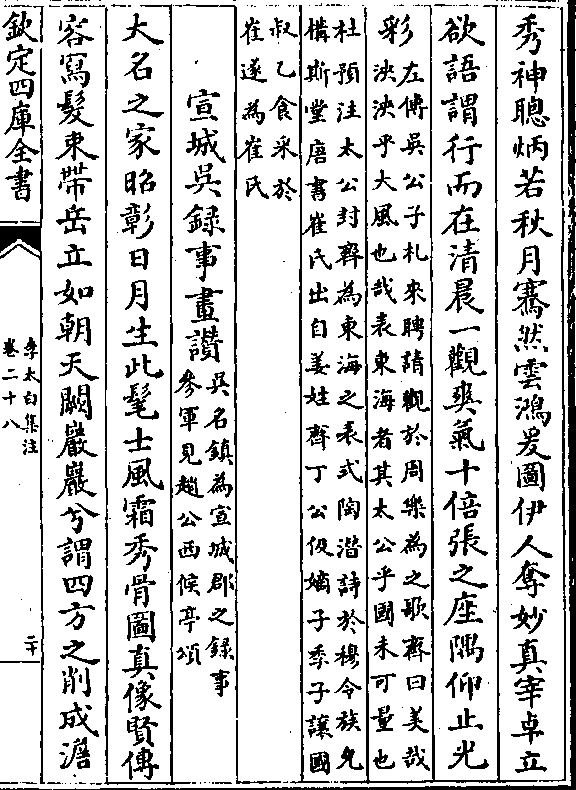 秀神聰炳若秋月騫然雲鴻爰圖伊人奪妙真宰卓立
欲語謂行而在清晨一觀爽氣十倍張之座隅仰止光
彩
左傳吳公子札來聘請觀於周樂為之歌齊曰美哉
泱泱乎大風也哉表東海者其太公乎國未可量也
杜預注太公封齊為東海之表式陶潛詩於穆令族允
構斯堂唐書崔氏出自姜姓齊丁公伋嫡子季子讓國
叔乙食采於
崔遂為崔氏
宣城吳録事畫讚
吳名鎮為宣城郡之録事
參軍見趙公西候亭頌
大名之家昭彰日月生此髦士風霜秀骨圖真像賢傳
容寫髮束帶岳立如朝天闕巖巖兮謂四方之削成澹
欽定四庫全書
李太白集注
卷二十八
二十